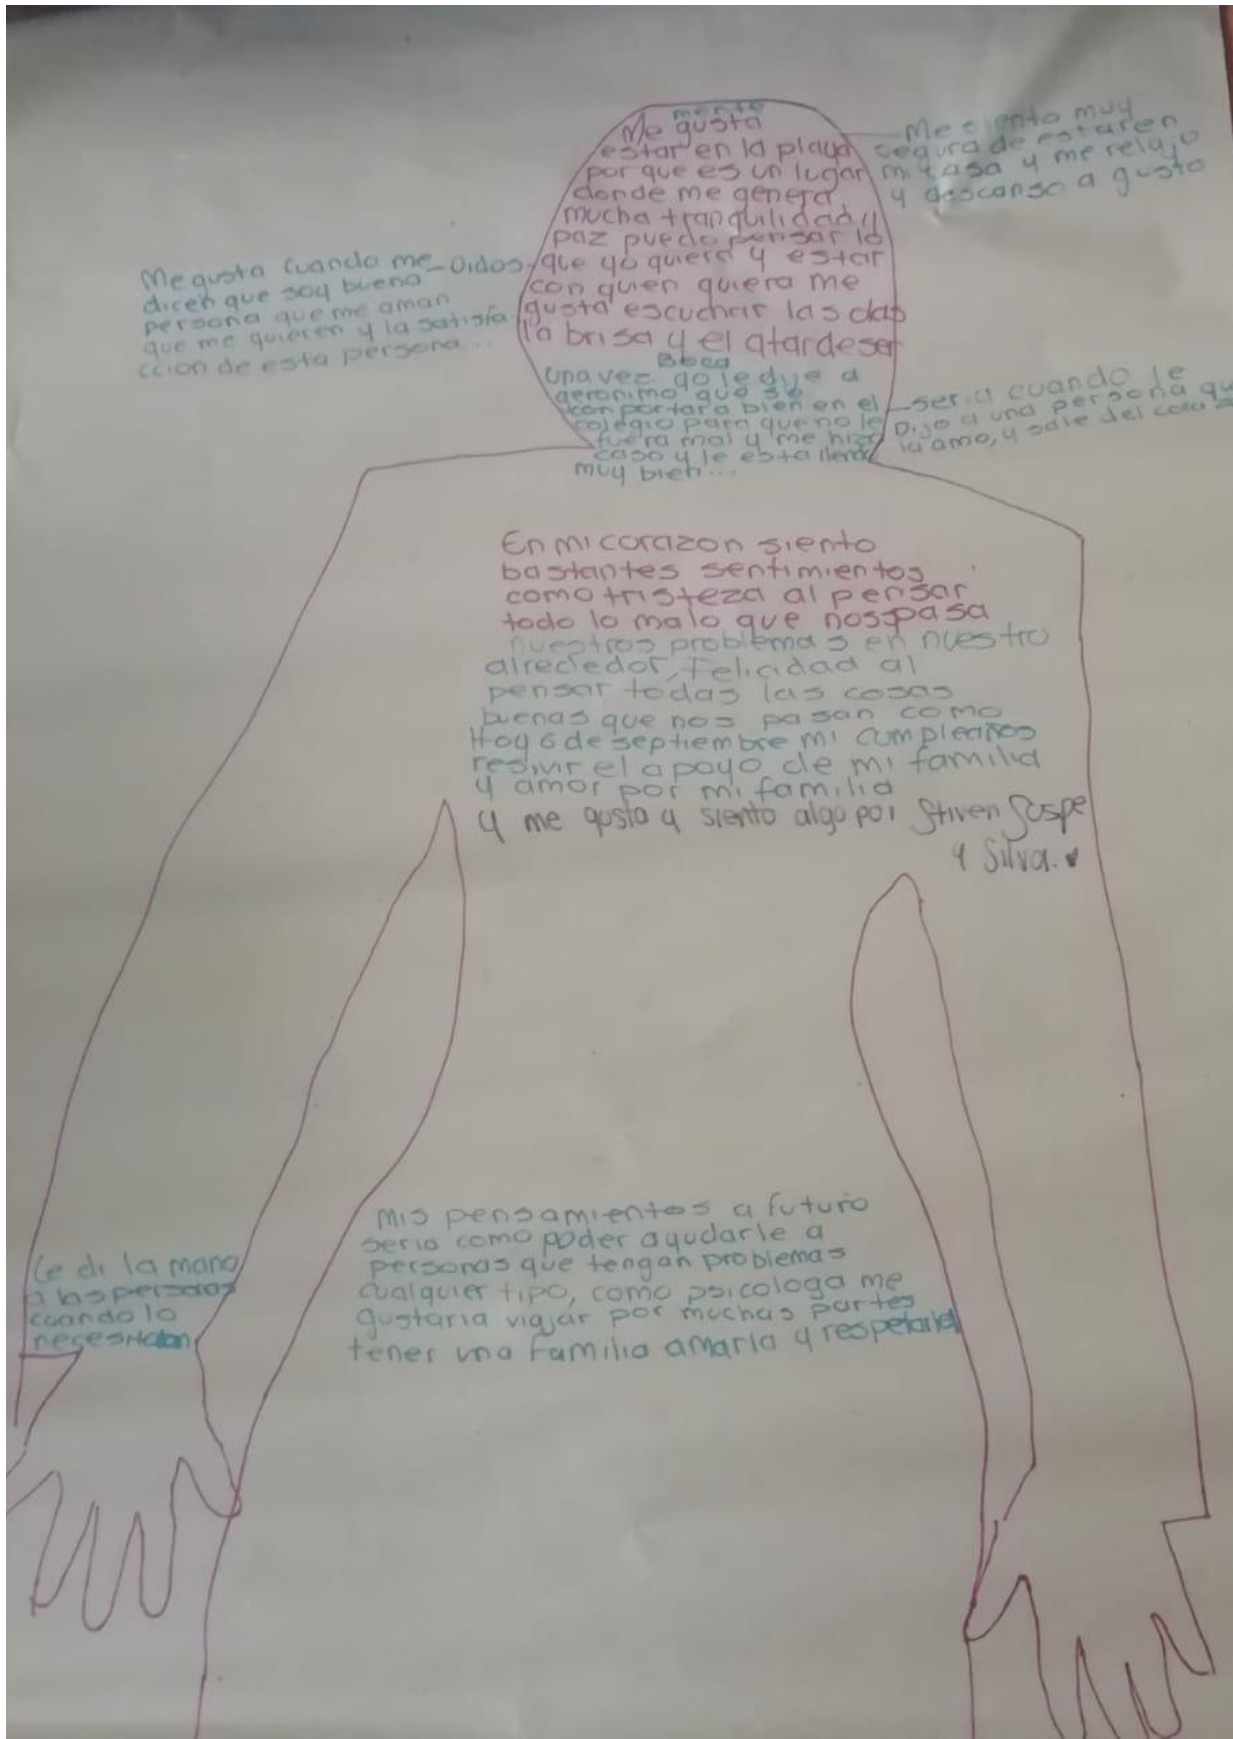 mente
Me gusta
estar en la playa
por que es un lugar
donde me genera
mucha tranquilidad y
paz puedo pensar lo
que yo quiera y estar
con quien quiera me
gusta escuchar las olas
la brisa y el atardeser
Me siento muy
segura de estar en
mi casa y me relajo
y descanso a gusto
Oidos
Me gusta cuando me
dicen que soy buena
persona que me aman
que me quieren y la satisfa
ccion de esta persona...
Boca
una vez yo le dije a
geronimo que se
comportara bien en el
colegio para que no le
fuera mal y me hizo
caso y le esta llendo
muy bien...
ser, y cuando le
Digo a una persona que
la amo, y sale del
En mi corazon siento
bastantes sentimientos
como tristeza al pensar
todo lo malo que nos pasa
nuestros problemas en nuestro
alrededor, Felicidad al
pensar todas las cosas
buenas que nos pasan como
Hoy 6 de septiembre mi cumpleaños
resivir el apoyo de mi familia
y amor por mi familia
y me gusta y siento algo por Stiven
y Silva. ♥
Le di la mano
a las personas
cuando lo
necesitaban
mis pensamientos a futuro
seria como poder ayudarle a
personas que tengan problemas
cualquier tipo, como psicologa me
gustaria viajar por muchas partes
tener una familia amarla y respetarla